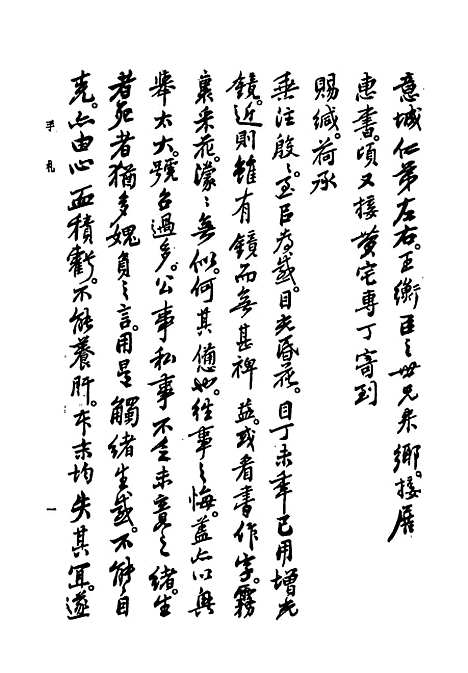 意城仁弟左右。王衡臣之世兄來鄉。接展
惠書。頃又接黃宅專丁寄到
賜緘。荷承
垂注殷々。至以為感。目光昏花。自丁未年已用增光
鏡。近則雖有鏡而無甚裨益。或看書作字。霧
裏采花。濛々無似。何其憊也。往事之悔。蓋亦以興
舉太大。號召過多。公事私事不乏未竟之緒。生
者死者猶多媿負之言。用是觸緒生感。不能自
克。亦由心血積虧。不能養肝。本末均失其宜。遂
手札
一